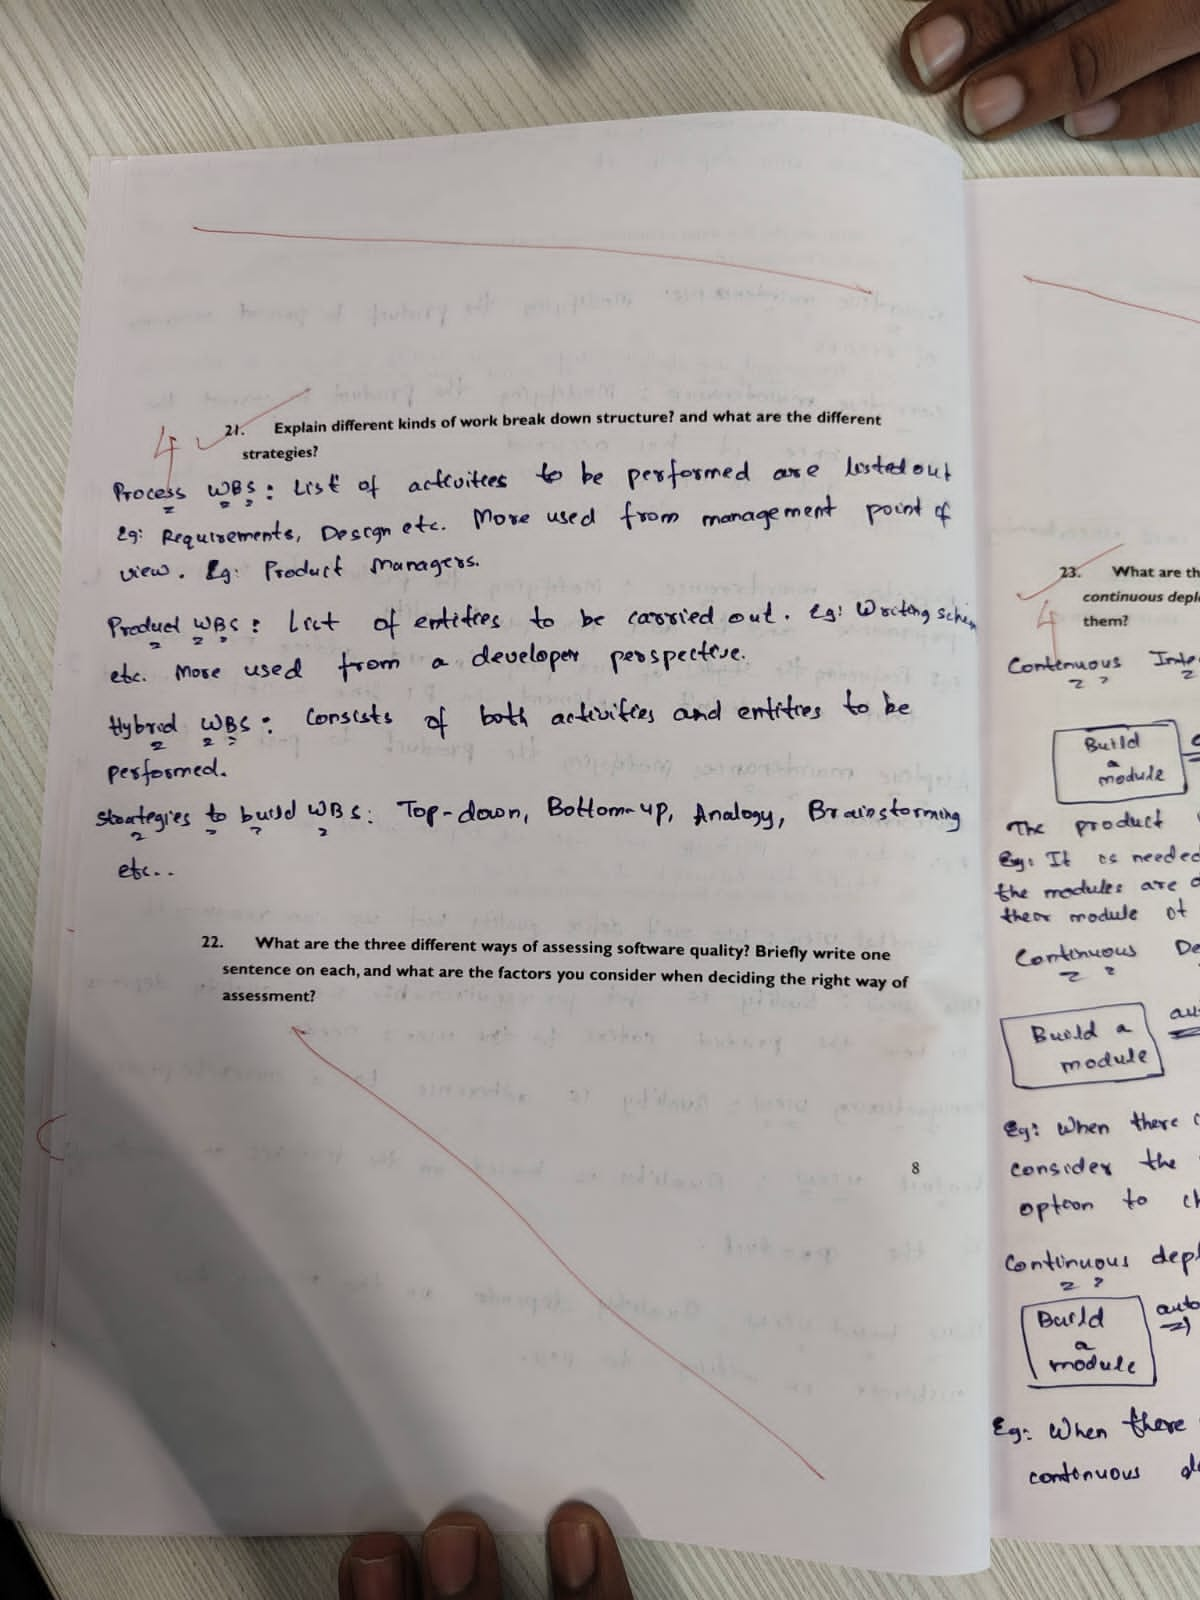 4
21. Explain different kinds of work break down structure? and what are the different
strategies?
Process WBS: List of activities to be performed are listed out
Eg: Requirements, Design etc. More used from management point of
view. Eg: Product Managers.
Product WBS: List of entities to be carried out. Eg: Writing
etc. More used from a developer perspective.
Hybrid WBS: Consists of both activities and entities to be
performed.
Strategies to build WBS: Top-down, Bottom-up, Analogy, Brainstorming
etc..
22. What are the three different ways of assessing software quality? Briefly write one
sentence on each, and what are the factors you consider when deciding the right way of
assessment?
8
23. What are th
continuous deplo
them?
4
Continuous Inte
Build
a
module
The product
Eg: It is needed
the modules are
their module of
Continuous De
Build a
module
au
Eg: When there
consider the
option to ch
Continuous depl
Build
a
module
auto
Eg: When there
continuous de